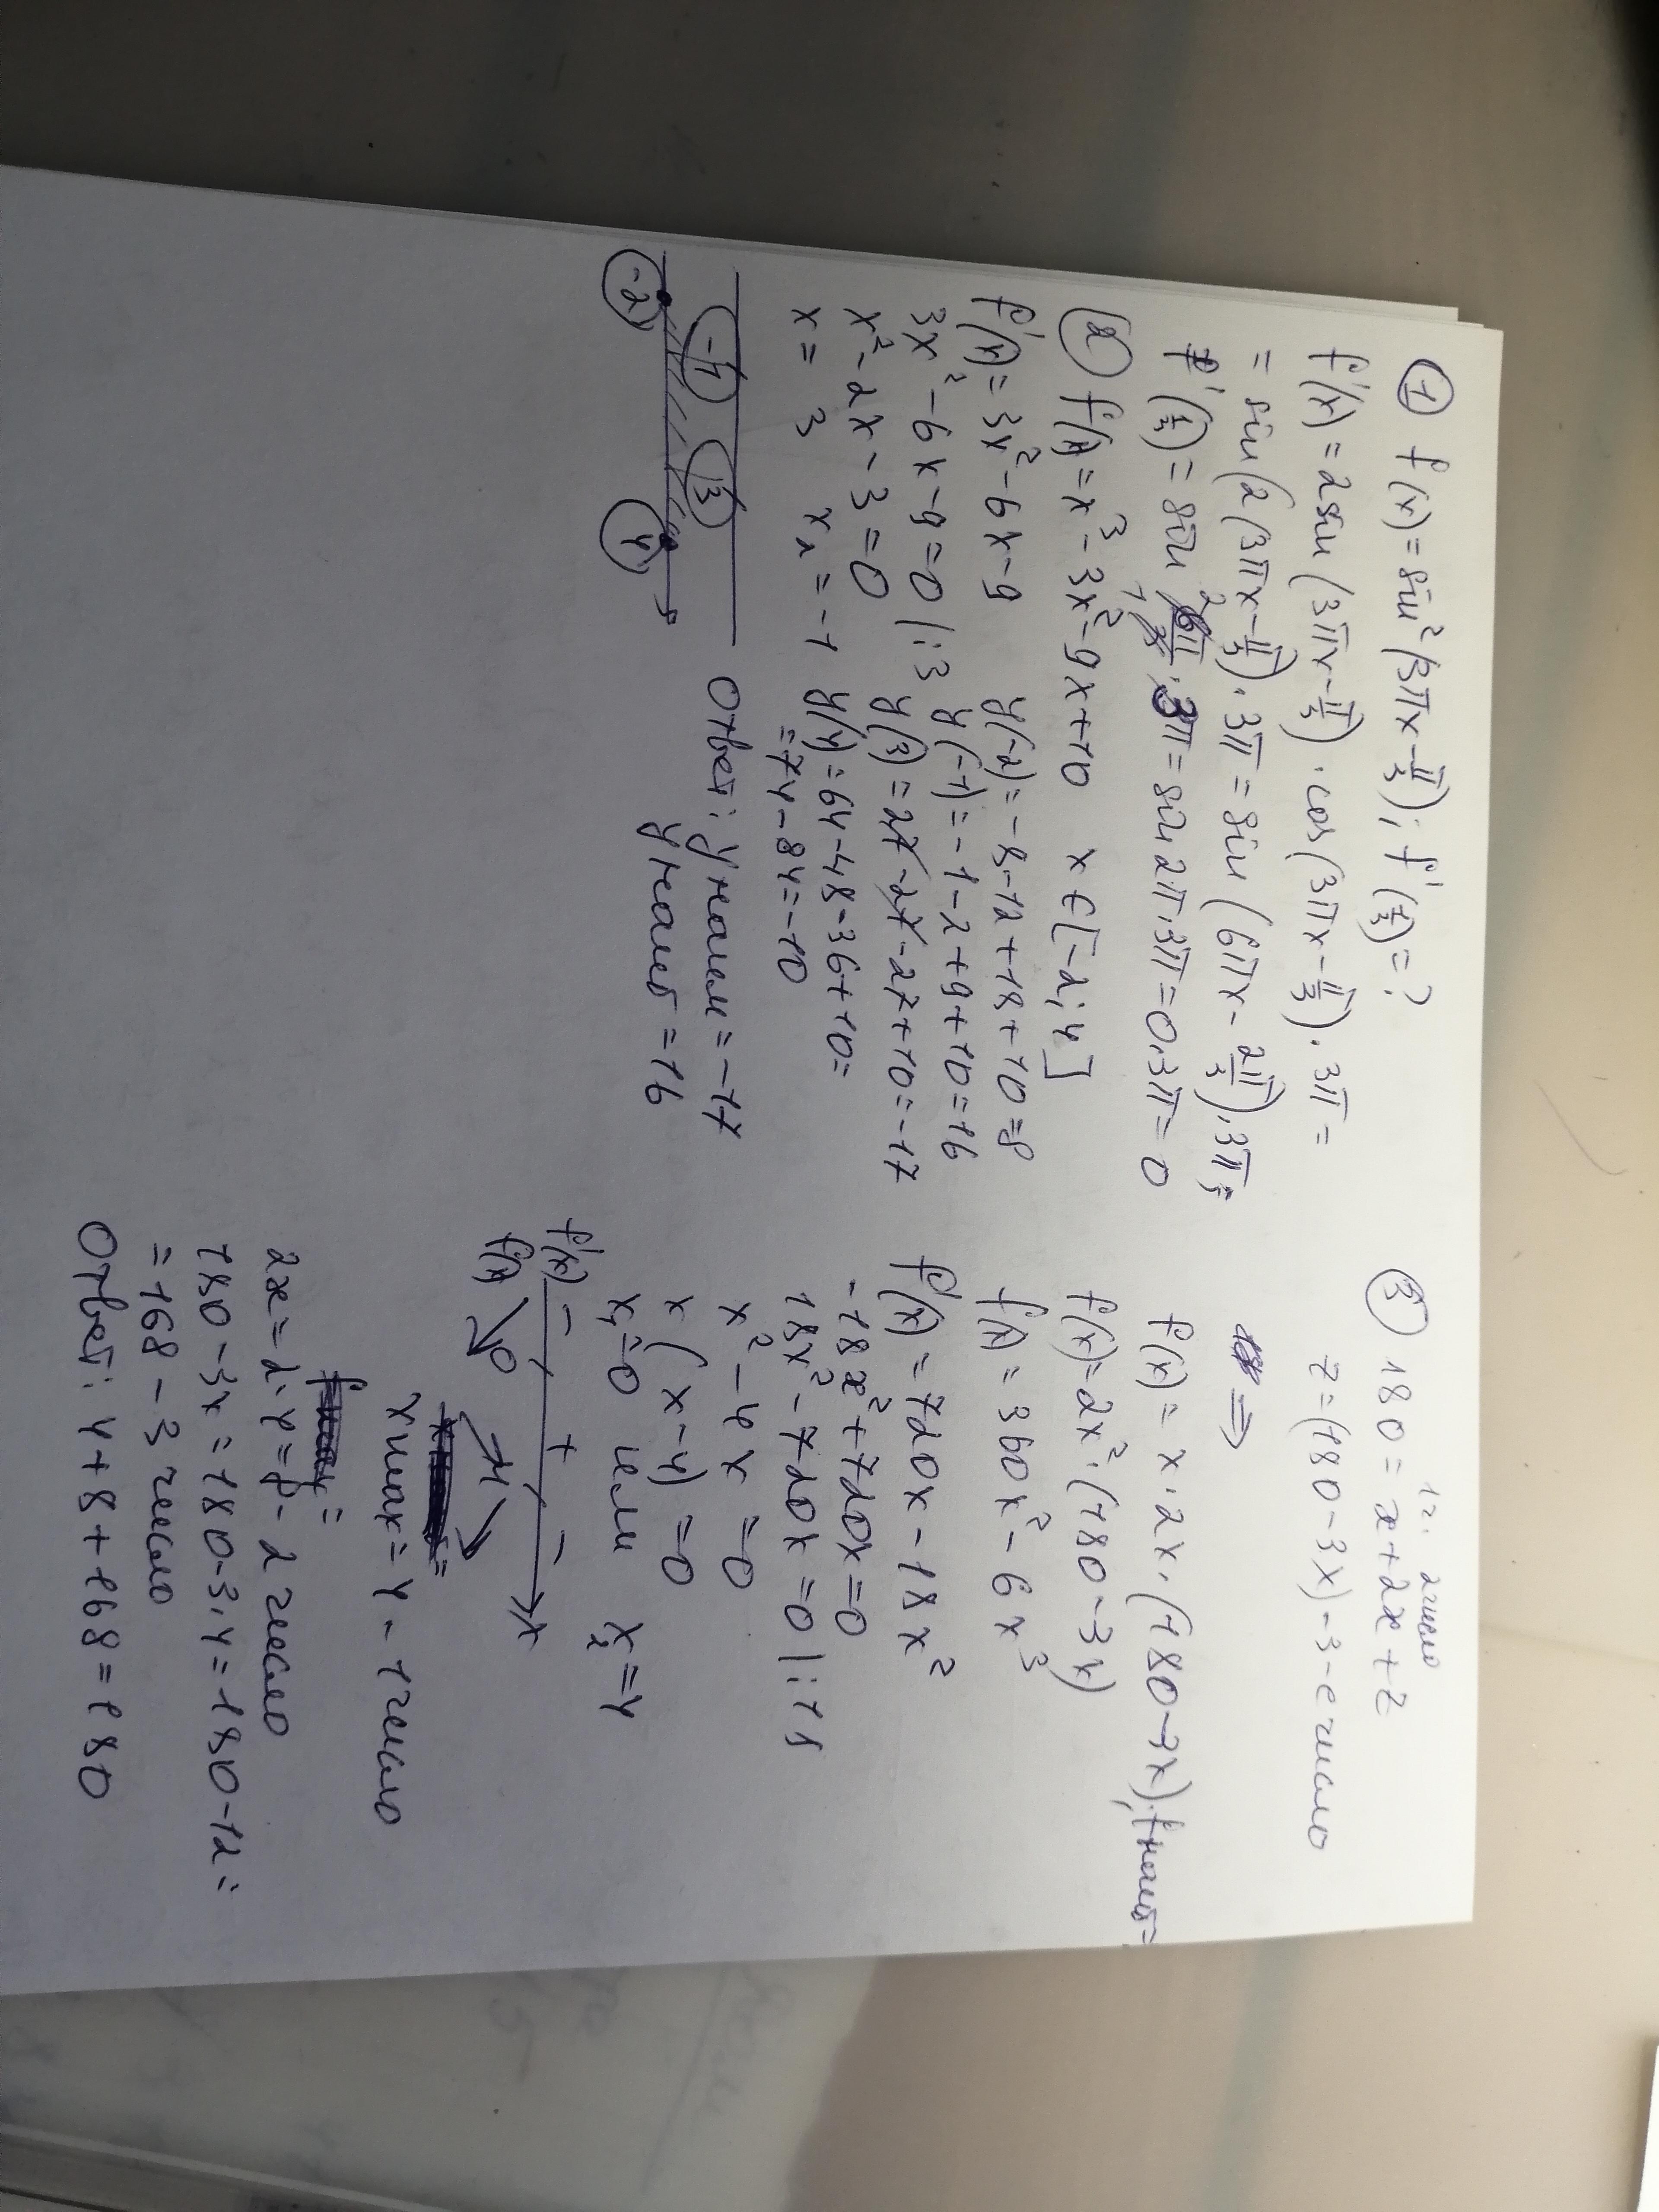 ① f(x) = sin²(3πx - π/3); f'(1/3) = ?
f'(x) = 2sin(3πx - π/3) · cos(3πx - π/3) · 3π =
= sin(2(3πx - π/3)) · 3π = sin(6πx - 2π/3) · 3π;
f'(1/3) = sin 6π/3 · 3π = sin 2π · 3π = 0 · 3π = 0
② f(x) = x³ - 3x² - 9x + 10 x ∈ [-2; 4]
f'(x) = 3x² - 6x - 9
3x² - 6x - 9 = 0 |:3
x² - 2x - 3 = 0
x = 3 x₂ = -1
-1 3
-2 4
y(-2) = -8 - 12 + 18 + 10 = 8
y(-1) = -1 - 2 + 9 + 10 = 16
y(3) = 27 - 27 - 27 + 10 = -17
y(4) = 64 - 48 - 36 + 10 =
= 74 - 84 = -10
Ответ: y наим = -17
y наиб = 16
1ч. 2число
③ 180 = x + 2x + z
z = (180 - 3x) - 3 - е число
⇒
f(x) = x · 2x · (180 - 3x), f наиб =
f(x) = 2x² · (180 - 3x)
f(x) = 360x² - 6x³
f'(x) = 720x - 18x²
-18x² + 720x = 0
18x² - 720x = 0 |:18
x² - 4x = 0
x(x - 4) = 0
x₁ = 0 или x₂ = 4
f'(x) - + - x
f(x) 0 4
x max = 4 - 1число
2x = 2·4 = 8 - 2 число
180 - 3x = 180 - 3·4 = 180 - 12 =
= 168 - 3 число
Ответ: 4 + 8 + 168 = 180